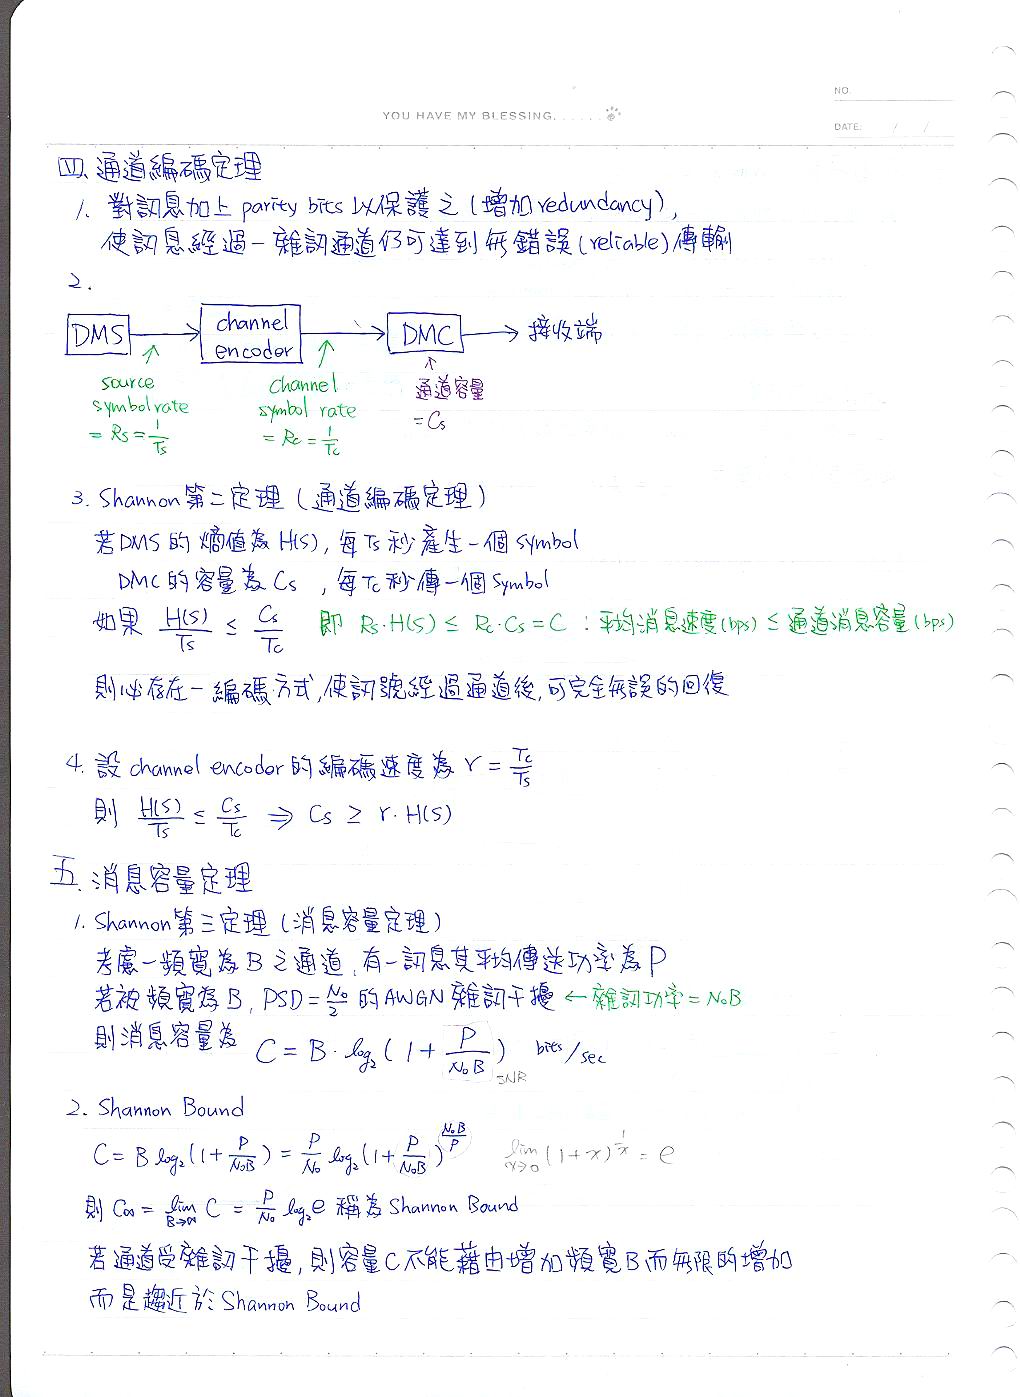 NO.
YOU HAVE MY BLESSING......
DATE: / /
四、通道編碼定理
1. 對訊息加上 parity bits 以保護之 (增加 redundancy),
使訊息經過一雜訊通道仍可達到無錯誤 (reliable) 傳輸
2.
DMS → channel encoder → DMC → 接收端
source symbol rate = Rs = 1/Ts
channel symbol rate = Rc = 1/Tc
通道容量 = Cs
3. Shannon 第二定理 (通道編碼定理)
若DMS 的熵值為 H(S), 每 Ts 秒產生一個 symbol
DMC 的容量為 Cs , 每 Tc 秒傳一個 symbol
如果 H(S)/Ts ≤ Cs/Tc 即 Rs·H(S) ≤ Rc·Cs = C : 平均消息速度(bps) ≤ 通道消息容量(bps)
則必存在一編碼方式, 使訊號經過通道後, 可完全無誤的回復
4. 設 channel encoder 的編碼速度為 r = Tc/Ts
則 H(S)/Ts ≤ Cs/Tc ⇒ Cs ≥ r·H(S)
五、消息容量定理
1. Shannon 第三定理 (消息容量定理)
考慮一頻寬為 B 之通道, 有一訊息其平均傳送功率為 P
若被頻寬為 B, PSD = N₀/2 的 AWGN 雜訊干擾 ← 雜訊功率 = N₀B
則消息容量為 C = B·log₂(1 + P/(N₀B)) bits/sec
SNR
2. Shannon Bound
C = B log₂(1 + P/(N₀B)) = P/N₀ log₂(1 + P/(N₀B))^(N₀B/P) lim x→0 (1+x)^(1/x) = e
則 C∞ = lim B→∞ C = P/N₀ log₂e 稱為 Shannon Bound
若通道受雜訊干擾, 則容量 C 不能藉由增加頻寬 B 而無限的增加
而是趨近於 Shannon Bound